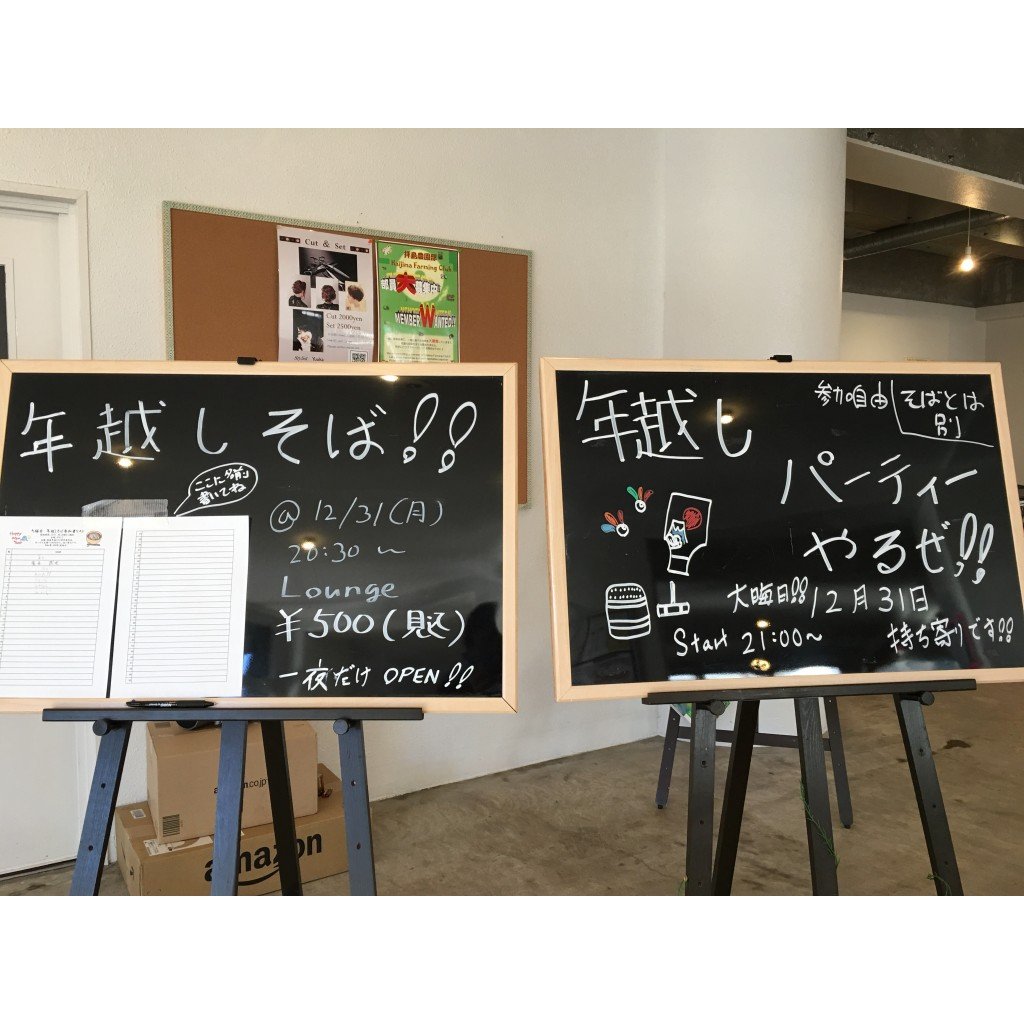 Cut & Set
Cut 2000yen
Set 2500yen
拝島農園部
Haijima Farming Club
部員大募集中!
MEMBER WANTED!!
年越しそば!!
ここに名前
書いてね
@ 12/31(月)
20:30 〜
Lounge
¥500(税込)
一夜だけ OPEN!!
年越し
参加自由
そばとは
別
パーティー
やるぜ!!
大晦日!! 12月31日
Start 21:00〜
持ち寄りです!!
amazon.co.jp
amazon